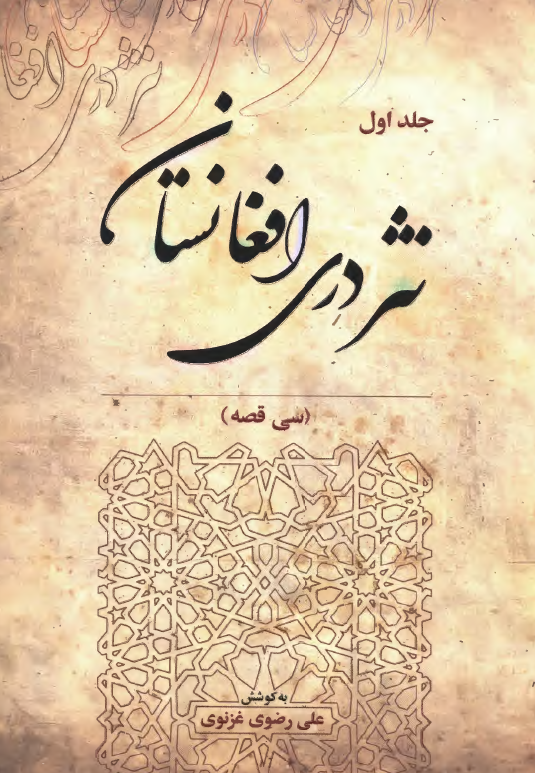 جلد اول
نثر دری افغانستان
(سی قصه)
به کوشش
علی رضوی غزنوی